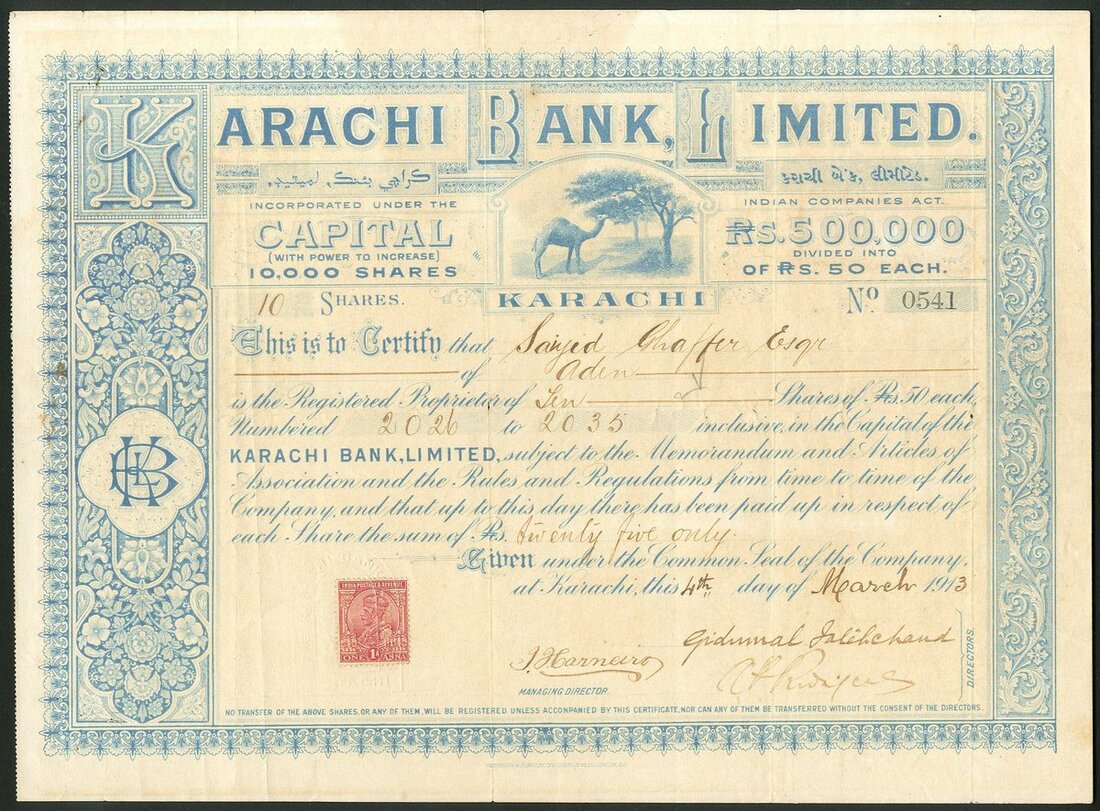 KARACHI BANK, LIMITED.
કરાચી બેંક, લીમીટેડ.
INCORPORATED UNDER THE
INDIAN COMPANIES ACT.
CAPITAL
RS. 500,000
(WITH POWER TO INCREASE)
DIVIDED INTO
10,000 SHARES
OF RS. 50 EACH.
KARACHI
10 SHARES.
No 0541
This is to Certify that Sayid Ghaffer Esqr
of Aden
is the Registered Proprietor of Ten Shares of Rs. 50 each,
Numbered 2026 to 2035 inclusive, in the Capital of the
KARACHI BANK, LIMITED, subject to the Memorandum and Articles of
Association and the Rules and Regulations from time to time of the
Company, and that up to this day there has been paid up in respect of
each Share the sum of Rs. twenty five only.
Given under the Common Seal of the Company,
at Karachi, this 4th day of March 1913
INDIA POSTAGE & REVENUE
ONE 1A ANNA
MANAGING DIRECTOR.
DIRECTORS.
NO TRANSFER OF THE ABOVE SHARES, OR ANY OF THEM, WILL BE REGISTERED UNLESS ACCOMPANIED BY THIS CERTIFICATE, NOR CAN ANY OF THEM BE TRANSFERRED WITHOUT THE CONSENT OF THE DIRECTORS.